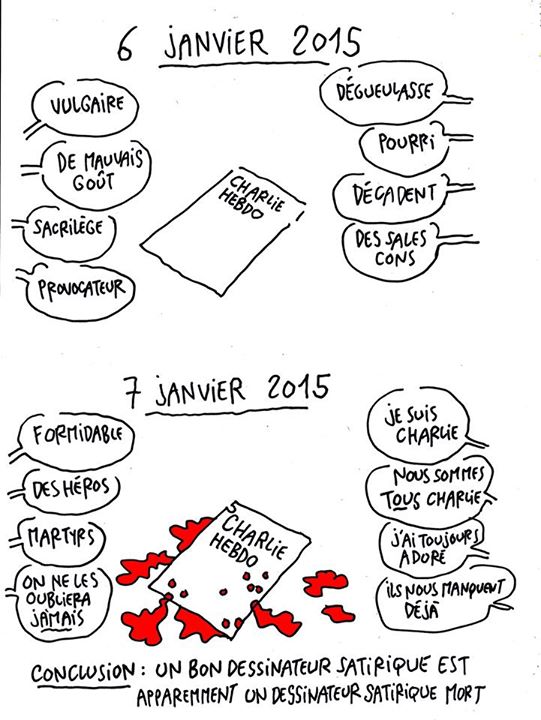 6 JANVIER 2015
VULGAIRE
DE MAUVAIS
GOÛT
SACRILÈGE
PROVOCATEUR
CHARLIE
HEBDO
DÉGUEULASSE
POURRI
DÉCADENT
DES SALES
CONS
7 JANVIER 2015
FORMIDABLE
DES HÉROS
MARTYRS
ON NE LES
OUBLIERA
JAMAIS
CHARLIE
HEBDO
JE SUIS
CHARLIE
NOUS SOMMES
TOUS CHARLIE
J'AI TOUJOURS
ADORÉ
ILS NOUS MANQUENT
DÉJÀ
CONCLUSION : UN BON DESSINATEUR SATIRIQUE EST
APPAREMMENT UN DESSINATEUR SATIRIQUE MORT